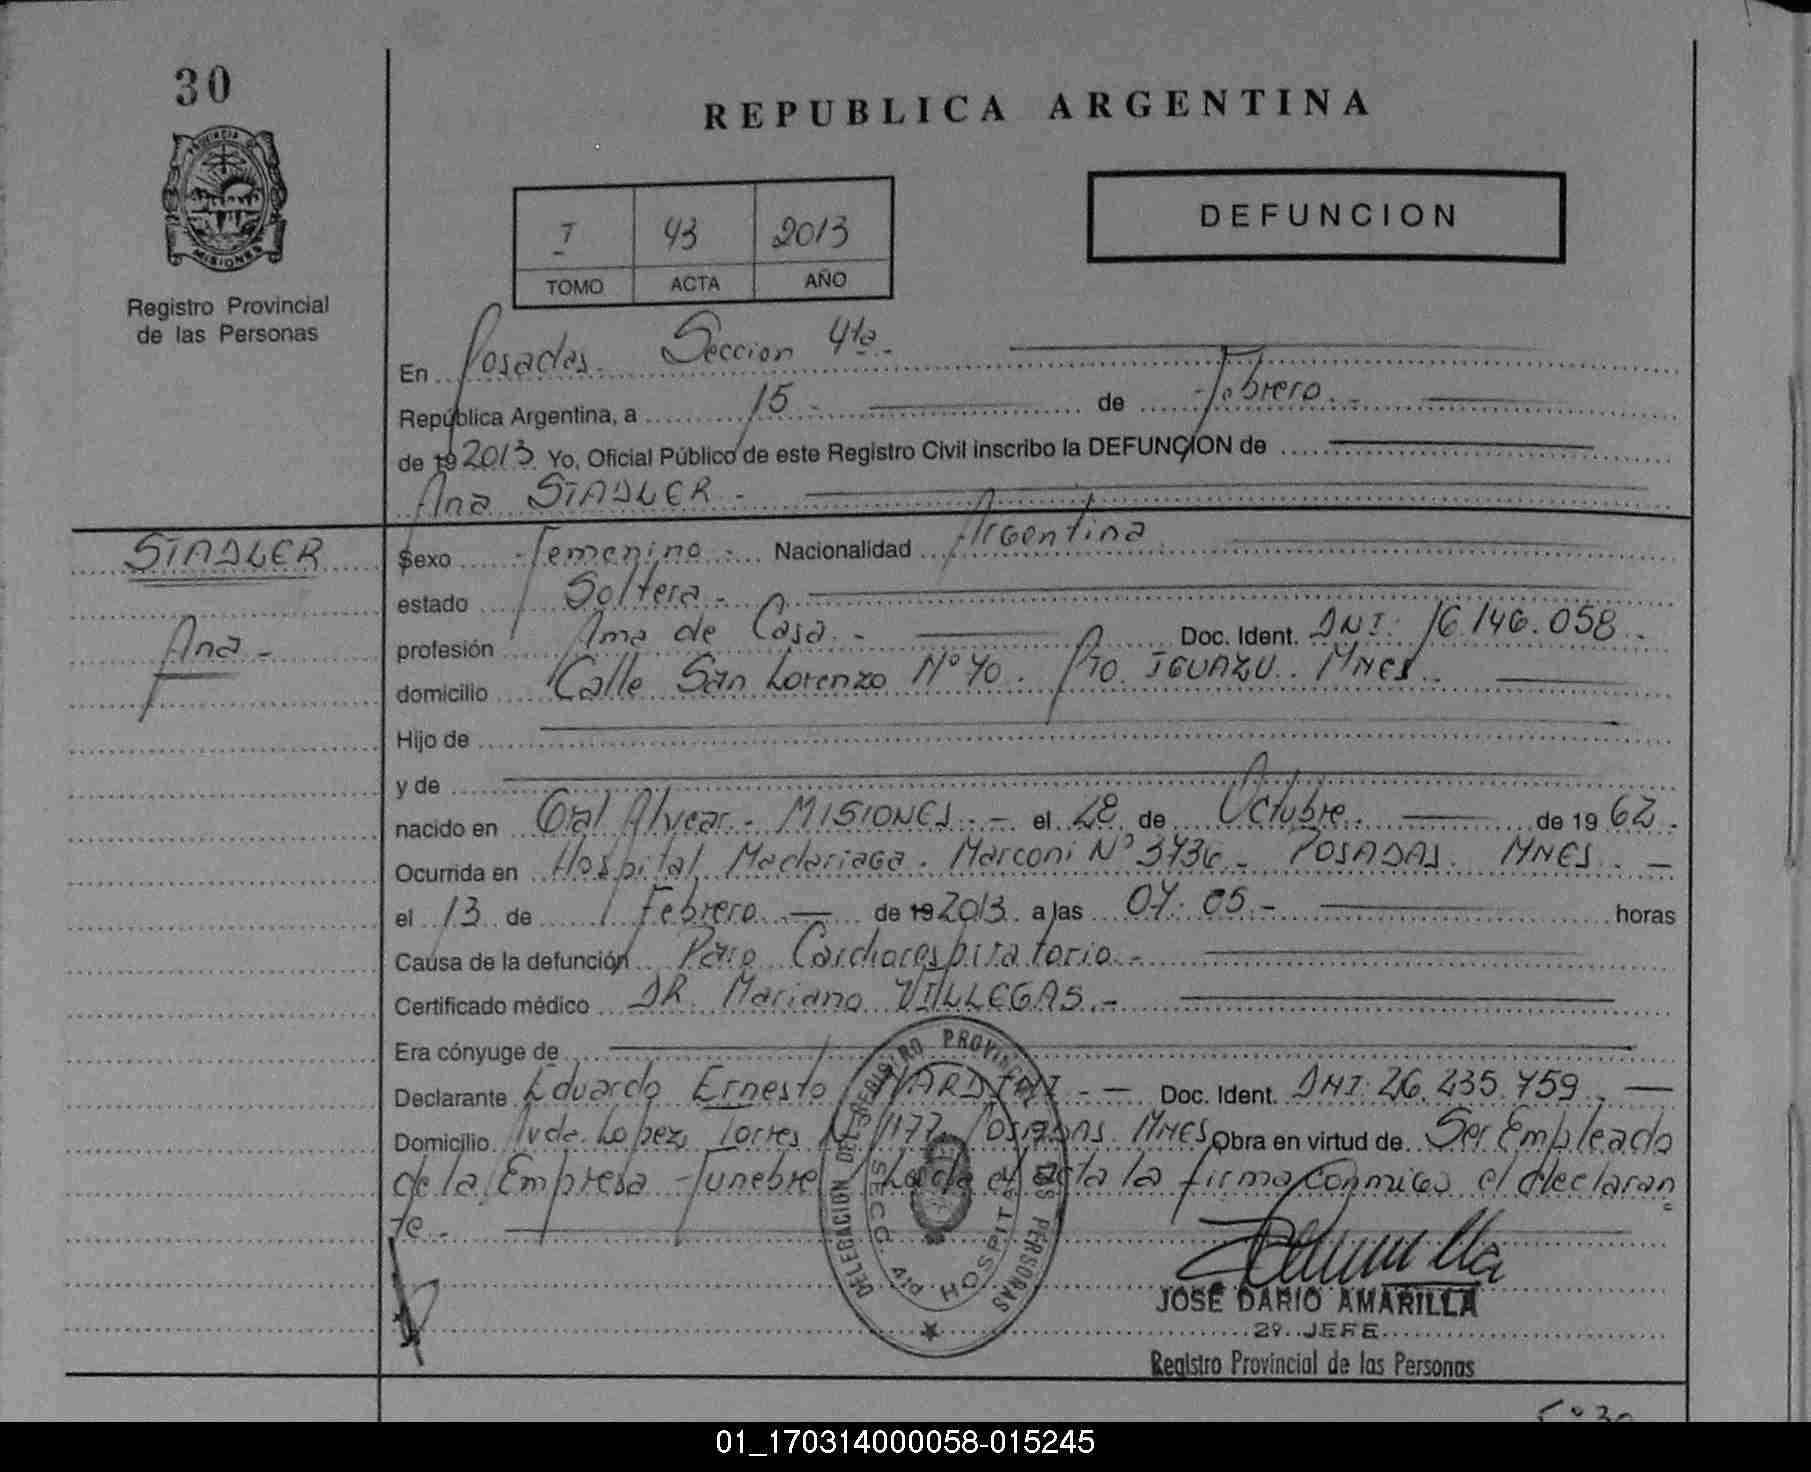 30
REPUBLICA ARGENTINA
PROVINCIA DE
MISIONES
Registro Provincial
de las Personas
DEFUNCION
I 43 2013
TOMO ACTA AÑO
En Posadas. Seccion 4ta.-
República Argentina, a 15.- de Febrero.-
de 19 2013. Yo, Oficial Público de este Registro Civil inscribo la DEFUNCION de
Ana STADLER.-
STADLER
Ana.-
Sexo Femenino.- Nacionalidad Argentina
estado Soltera.-
profesión Ama de Casa.- Doc. Ident. DNI: 16.146.058.-
domicilio Calle San Lorenzo Nº 40. Pto. IGUAZU. MNES.
Hijo de
y de
nacido en Gral Alvear.- MISIONES.- el 28 de Octubre. de 19 62.-
Ocurrida en Hospital Madariaga. Marconi Nº 3736.- POSADAS. MNES.-
el 13 de Febrero.- de 19 2013. a las 07:05.- horas
Causa de la defunción Paro Cardiorespiratorio.-
Certificado médico DR. Mariano VILLEGAS.-
Era cónyuge de
Declarante Eduardo Ernesto Doc. Ident. DNI: 26.235.759.-
Domicilio Avda. Lopez Torres Nº 1177. Posadas. MNES Obra en virtud de Ser Empleado
de la Empresa Funebre Leida el acta la firma conmigo el declaran
te.-
DELEGACION DEL REGISTRO PROVINCIAL DE LAS PERSONAS
SECC. 4ta HOSPITAL
JOSE DARIO AMARILLA
2º JEFE
Registro Provincial de las Personas
01_170314000058-015245